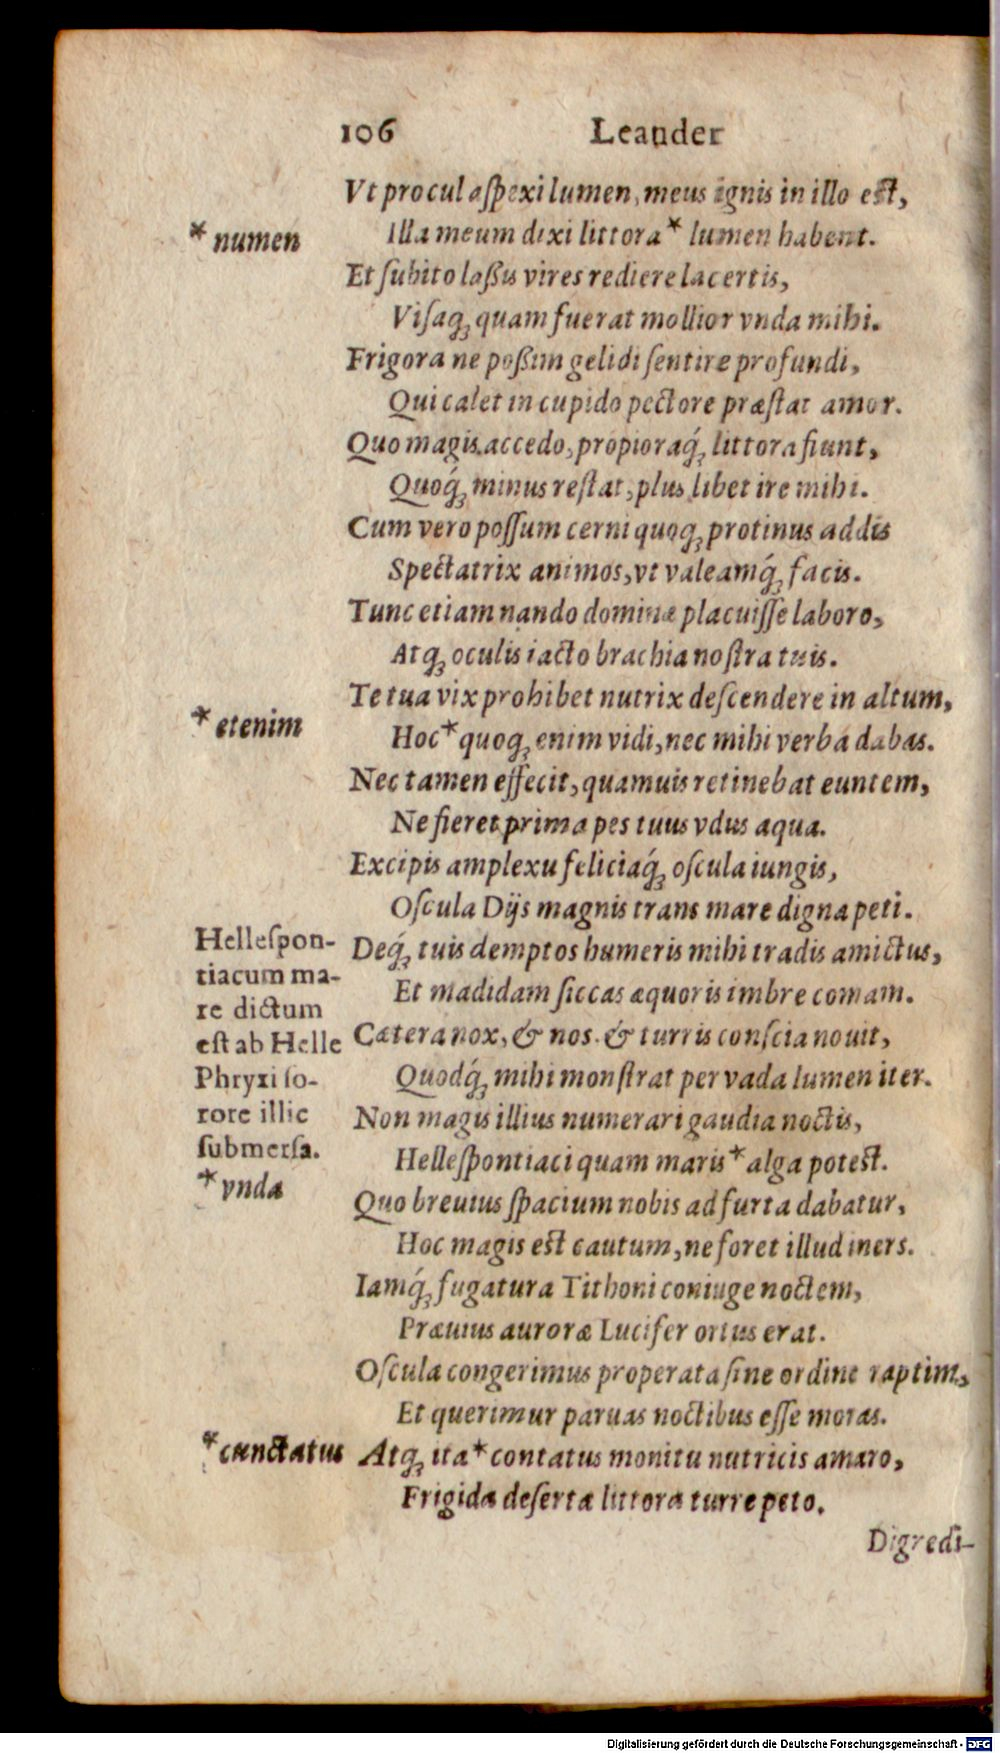 106 Leander
Vt procul aſpexi lumen, meus ignis in illo est,
* numen
Illa meum dixi littora* lumen habent.
Et ſubito laßis vires rediere lacertis,
Viſaq; quam fuerat mollior vnda mihi.
Frigora ne poßim gelidi ſentire profundi,
Qui calet in cupido pectore præſtat amor.
Quo magis accedo, propioraq́; littora fiunt,
Quoq́; minus reſtat, plus libet ire mihi.
Cum vero poſſum cerni quoq; protinus addis
Spectatrix animos, vt valeamq́; facis.
Tunc etiam nando dominæ placuiſſe laboro,
Atq; oculis iacto brachia noſtra tuis.
Te tua vix prohibet nutrix deſcendere in altum,
* etenim
Hoc* quoq; enim vidi, nec mihi verba dabas.
Nec tamen effecit, quamuis retinebat euntem,
Ne fieret prima pes tuus vdus aqua.
Excipis amplexu feliciaq́; oſcula iungis,
Oſcula Dijs magnis trans mare digna peti.
Deq́; tuis demptos humeris mihi tradis amictus,
Et madidam ſiccas æquoris imbre comam.
Cætera nox, & nos. & turris conſcia nouit,
Quodq́; mihi monſtrat per vada lumen iter.
Non magis illius numerari gaudia noctis,
Helleſpontiaci quam maris* alga potest.
Helleſpon-
tiacum ma-
re dictum
eſt ab Helle
Phryxi ſo-
rore illic
ſubmerſa.
* vnda
Quo breuius ſpacium nobis ad furta dabatur,
Hoc magis est cautum, ne foret illud iners.
Iamq́; fugatura Tithoni coniuge noctem,
Præuius auroræ Lucifer ortus erat.
Oſcula congerimus properata ſine ordine raptim,
Et querimur paruas noctibus eſſe moras.
*cunctatus
Atq; ita* contatus monitu nutricis amaro,
Frigida deſerta littora turre peto.
Digredi-
Digitalisierung gefördert durch die Deutsche Forschungsgemeinschaft - DFG